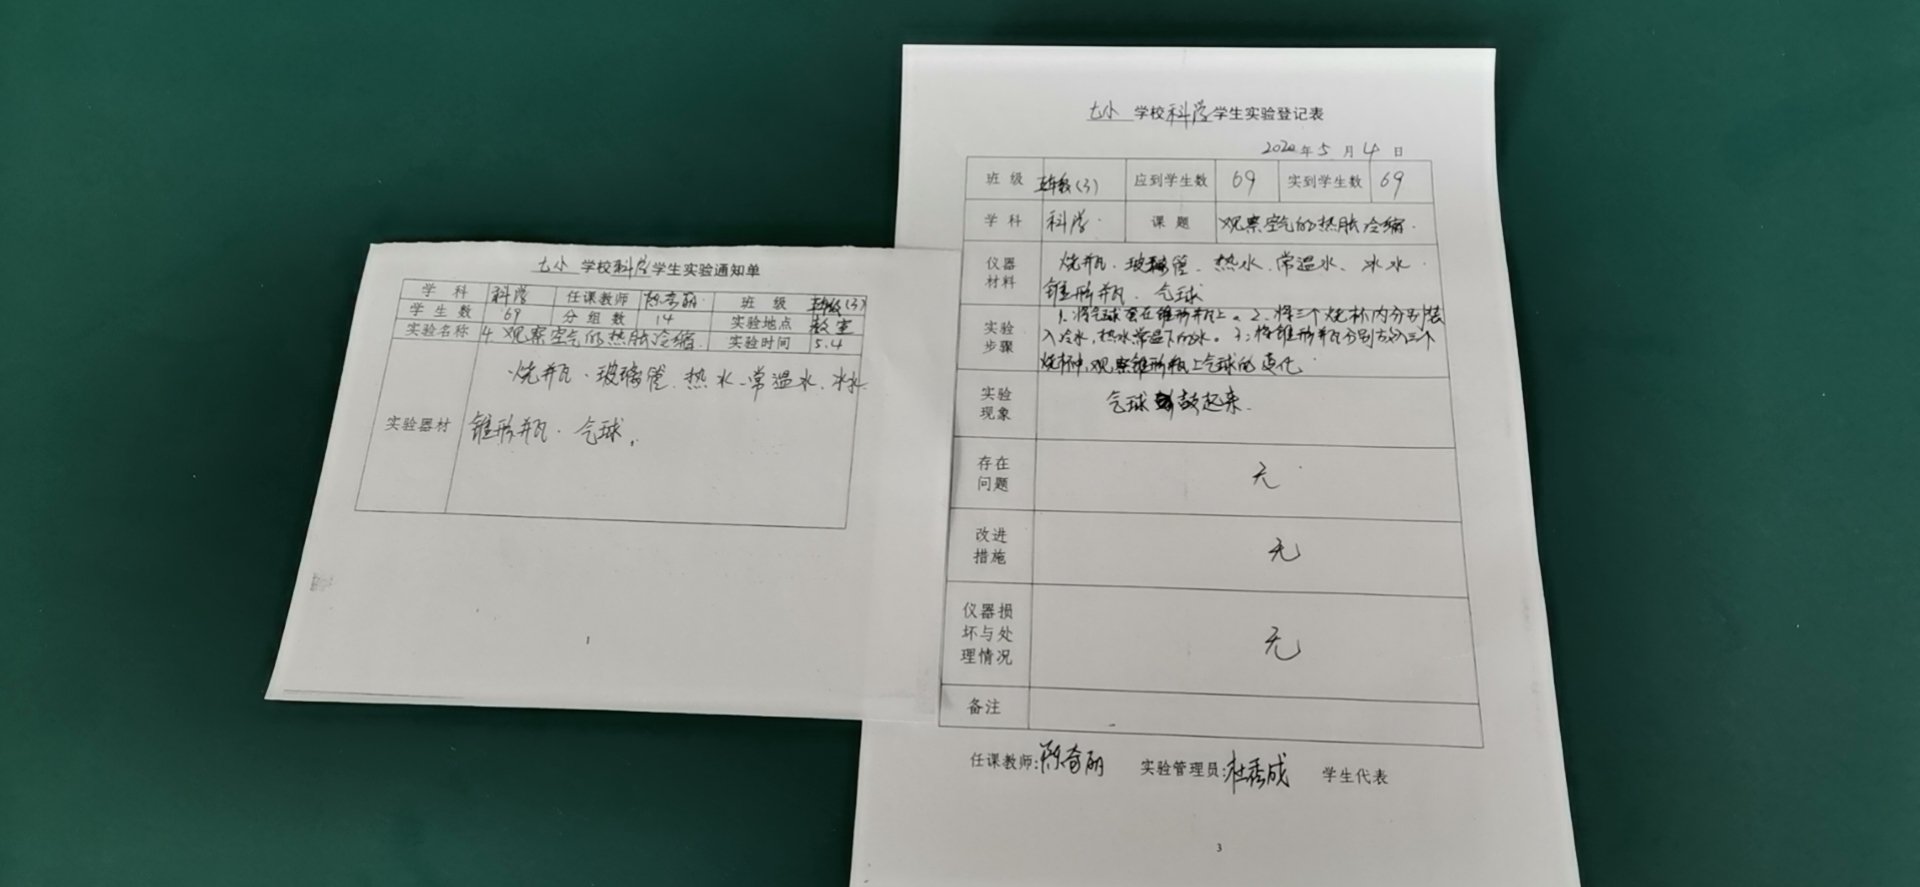 七小 学校科学学生实验通知单
学科 科学 任课教师 陈奇丽 班级 五年级(3)
学生数 69 分组数 14 实验地点 教室
实验名称 4.观察空气的热胀冷缩. 实验时间 5.4
实验器材
烧瓶、玻璃管、热水、常温水、冰水
锥形瓶、气球。
1
七小 学校科学学生实验登记表
年5月4日
班级 五年级(3) 应到学生数 69 实到学生数 69
学科 科学. 课题 观察空气的热胀冷缩.
仪器材料
烧瓶、玻璃管、热水、常温水、冰水
锥形瓶、气球
实验步骤
1、将气球套在锥形瓶上。2、将三个烧杯内分别装
入冷水,热水常温下的水。3、将锥形瓶分别放入三个
烧杯中,观察锥形瓶上气球的变化
实验现象
气球鼓起来.
存在问题
无
改进措施
无
仪器损坏与处理情况
无
备注
任课教师:陈奇丽 实验管理员:杜秀成 学生代表
3